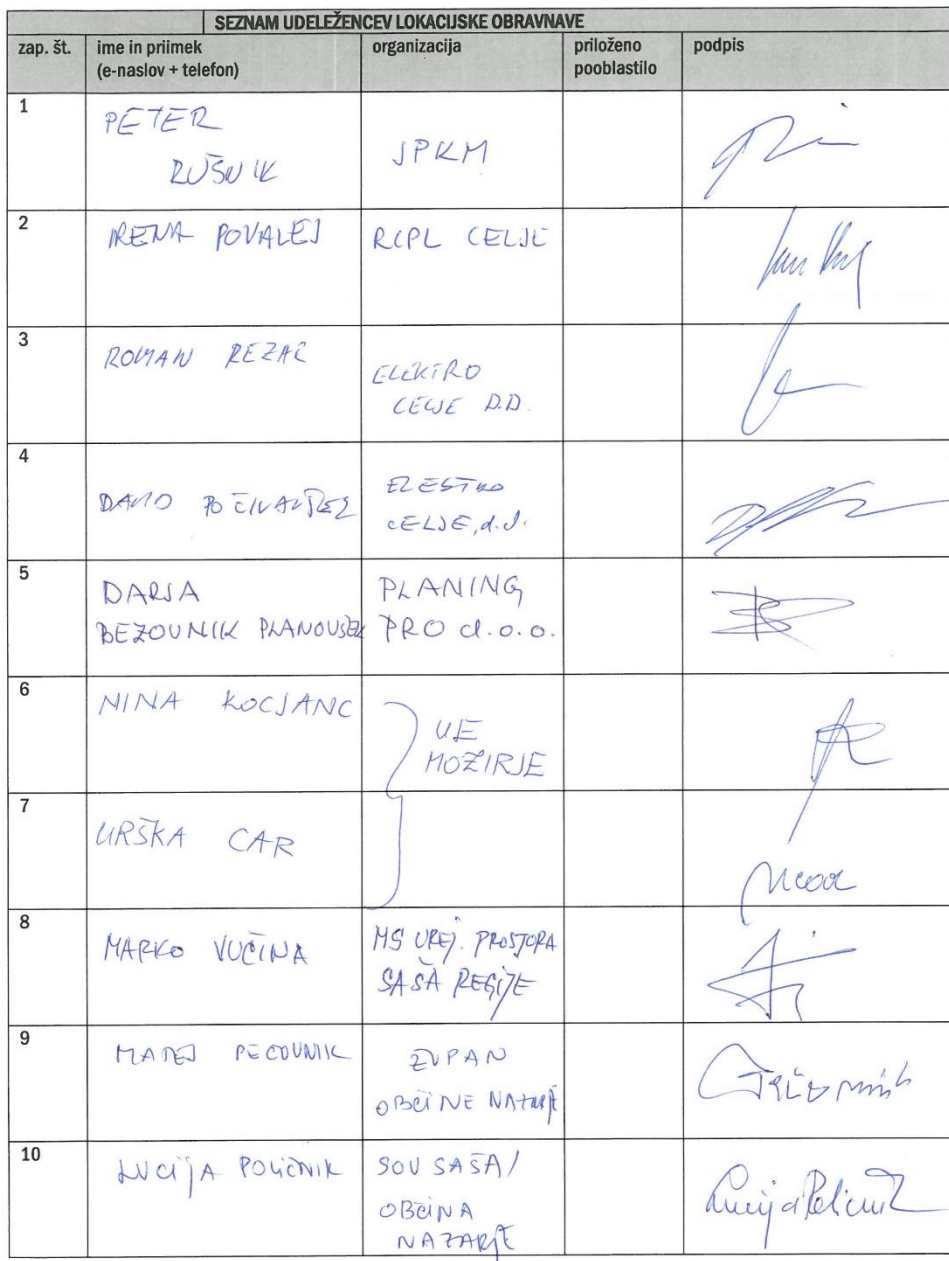 SEZNAM UDELEŽENCEV LOKACIJSKE OBRAVNAVE
zap. št. ime in priimek (e-naslov + telefon) organizacija priloženo pooblastilo podpis
1 PETER RUŠNIK JPKM
2 IRENA POVALEJ RCPL CELJE
3 ROMAN REZAR ELEKTRO CELJE D.D.
4 CELJE, d.d.
5 DARJA BEZOVNIK PLANOVŠEK PLANING PRO d.o.o.
6 NINA KOCJANC UE MOZIRJE
7 URŠKA CAR
8 MARKO VUČINA MS UREJ. PROSTORA SAŠA REGIJE
9 MATEJ PEČOVNIK ŽUPAN OBČINE NAZARJE
10 LUCIJA POLIČNIK SOU SAŠA/ OBČINA NAZARJE